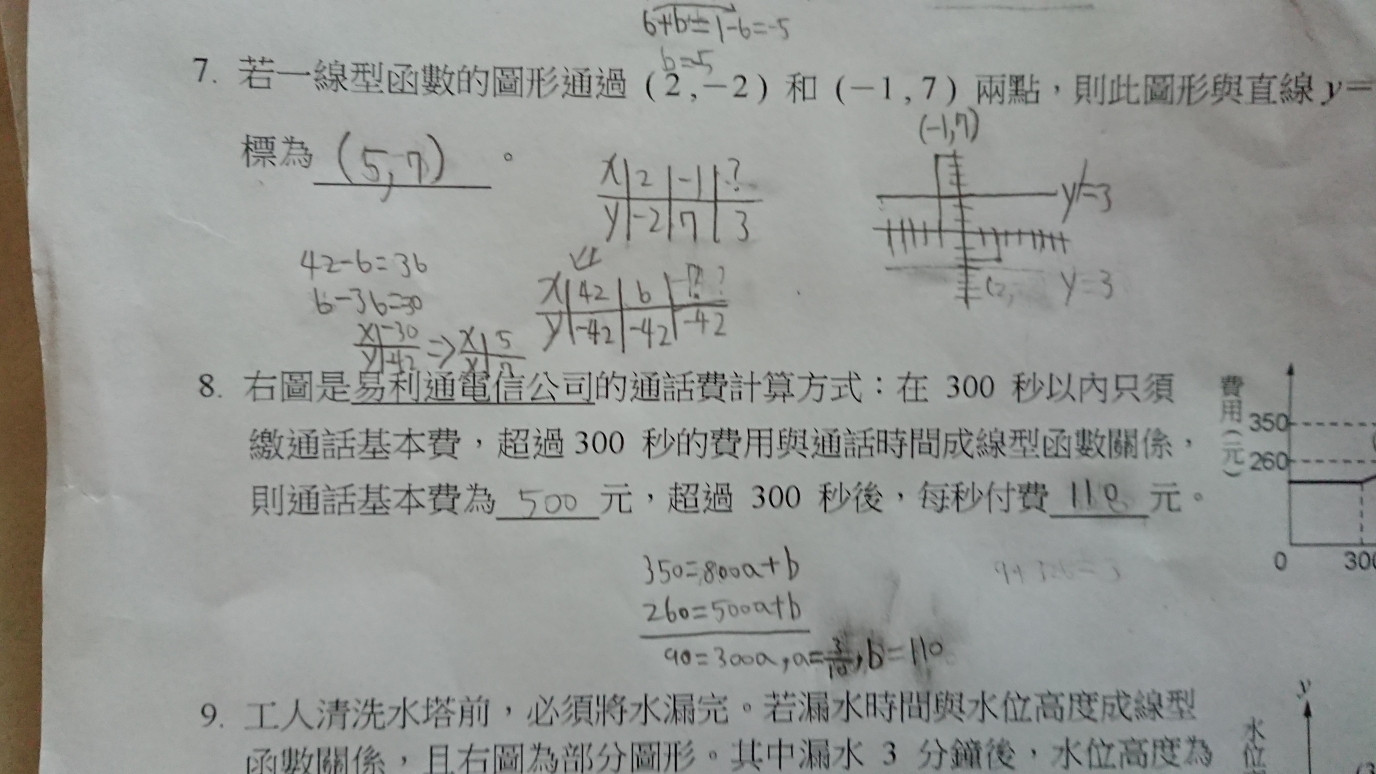 6+b=1-6=-5
b=5
7. 若一線型函數的圖形通過 (2,-2) 和 (-1,7) 兩點，則此圖形與直線 y=
(-1,7)
標為 (5,-7) 。
x 2 -1 ?
y -2 7 3
y=3
y=3
42-6=36
6-36=30
x 42 6 ?
y -42 -42 -42
x -30
y -42
=> x 5
8. 右圖是易利通電信公司的通話費計算方式：在 300 秒以內只須
繳通話基本費，超過 300 秒的費用與通話時間成線型函數關係，
則通話基本費為 500 元，超過 300 秒後，每秒付費 110 元。
費用(元)
350
260
0 300
350=800a+b
260=500a+b
90=300a, a=3/10, b=110
9. 工人清洗水塔前，必須將水漏完。若漏水時間與水位高度成線型
函數關係，且右圖為部分圖形。其中漏水 3 分鐘後，水位高度為
y
水位